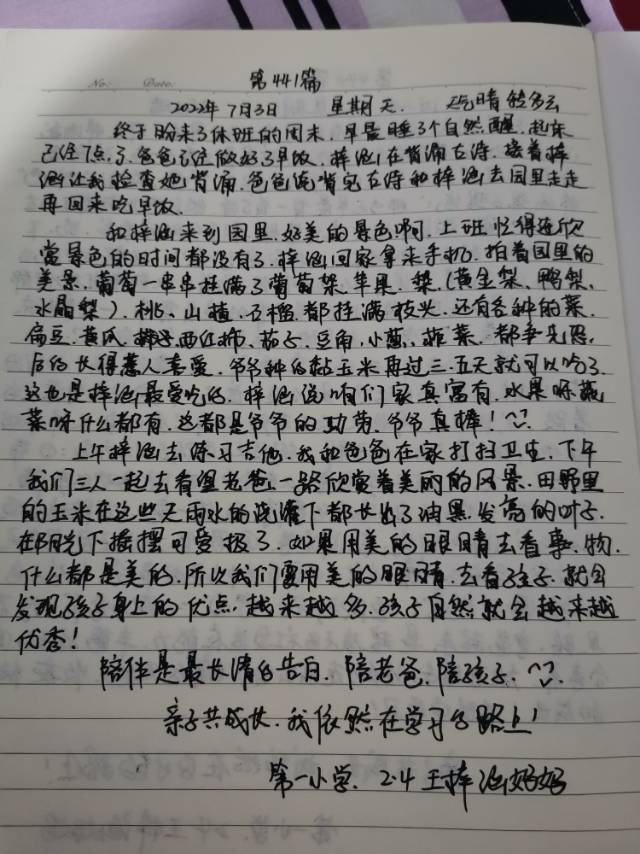 No: Date:
第441篇
2022年7月3日 星期天 天气晴转多云
终于盼来了休班的周末，早晨睡了个自然醒，起床
已经7点了，爸爸已经做好了早饭，梓涵在背诵古诗，接着梓
涵让我检查她背诵，爸爸说背完古诗和梓涵去园里走走
再回来吃早饭。
和梓涵来到园里，好美的景色啊，上班忙得连欣
赏景色的时间都没有了，梓涵回家拿来手机，拍着园里的
美景，葡萄一串串挂满了葡萄架，苹果、梨（黄金梨、鸭梨、
水晶梨）、桃、山楂、石榴都挂满枝头，还有各种的菜，
扁豆、黄瓜、西红柿、茄子、豆角、小葱、韭菜、都争先恐
后的长得惹人喜爱，爷爷种的黏玉米再过三、五天就可以吃了
这也是梓涵最爱吃的，梓涵说咱们家真富有，水果呀蔬
菜呀什么都有，这都是爷爷的功劳，爷爷真棒！
上午梓涵去练习吉他，我和爸爸在家打扫卫生，下午
我们三人一起去看望老爸，一路欣赏着美丽的风景，田野里
的玉米在这些天雨水的浇灌下都长出了油黑、发亮的叶子，
在阳光下摇摆可爱极了，如果用美的眼睛去看事、物，
什么都是美的，所以我们要用美的眼睛，去看孩子，就会
发现孩子身上的优点，越来越多，孩子自然就会越来越
优秀！
陪伴是最长情的告白，陪老爸，陪孩子，
亲子共成长，我依然在学习的路上！
第一小学，2.4 王梓涵妈妈